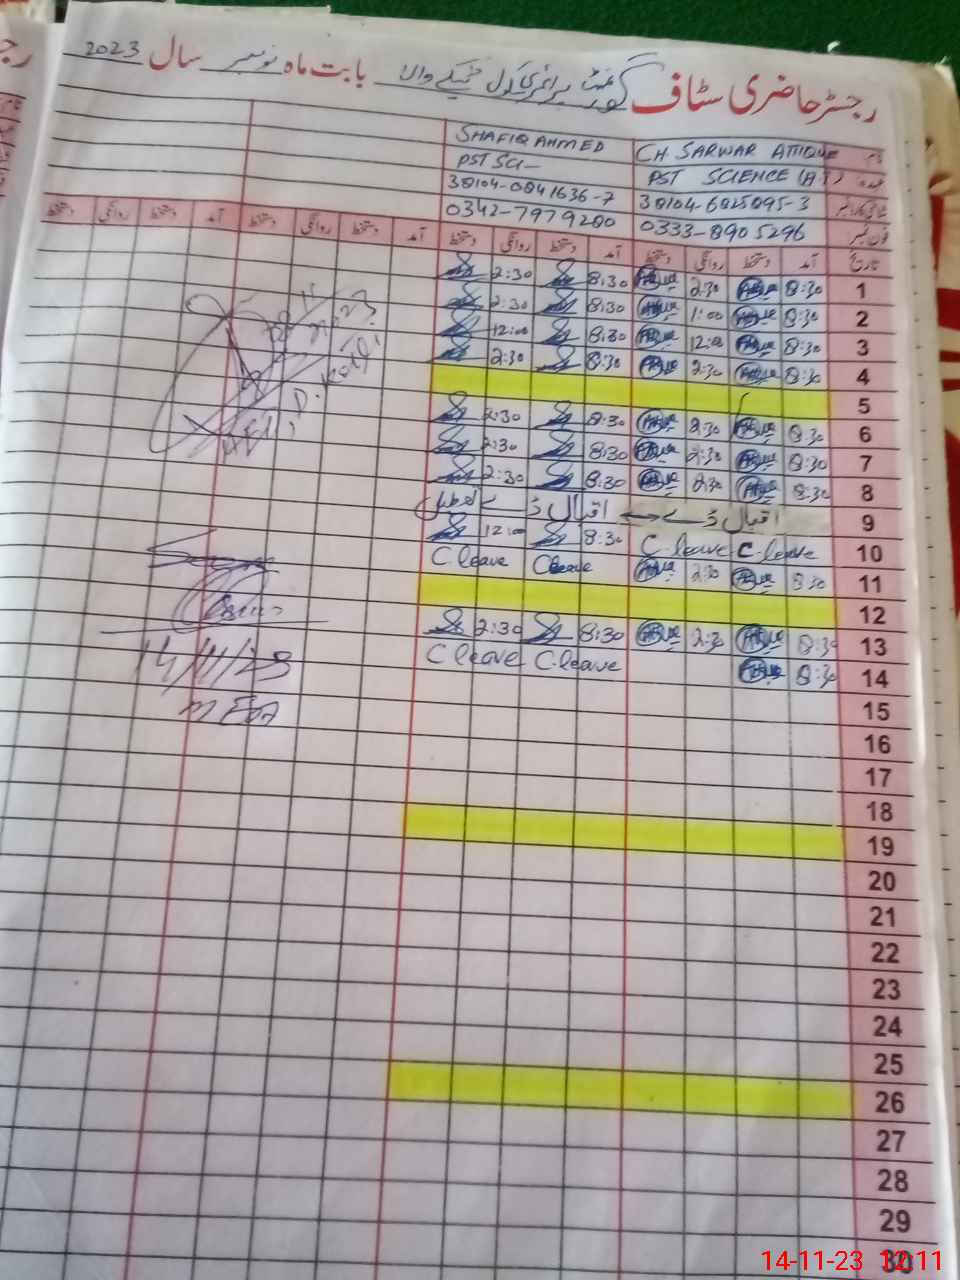 رجسٹر حاضری سٹاف گورنمنٹ پرائمری سکول ٹھیکے والا بابت ماہ نومبر سال 2023
نام CH. SARWAR ATIQUE SHAFIQ AHMED
عہدہ PST SCIENCE (A.T) PST SCI-
شناختی کارڈ نمبر 38104-6825895-3 38104-0841636-7
فون نمبر 0333-8905296 0342-7979280
تاریخ آمد دستخط روانگی دستخط آمد دستخط روانگی دستخط آمد دستخط روانگی دستخط آمد دستخط روانگی دستخط
1 8:30 2:30 8:30 2:30
2 8:30 1:00 8:30 2:30
3 8:30 12:00 8:30 12:00
4 8:30 2:30 8:30 2:30
5
6 8:30 2:30 8:30 2:30
7 8:30 2:30 8:30 2:30
8 8:30 2:30 8:30 2:30
9 اقبال ڈے اقبال ڈے تعطیل
10 C. leave C. leave 8:30 12:00
11 8:30 2:30 C leave C leave
12
13 8:30 2:30 8:30 2:30
14 8:30 C. leave C leave
15
16
17
18
19
20
21
22
23
24
25
26
27
28
29
30
14/11/23
MEA
14-11-23 12:11